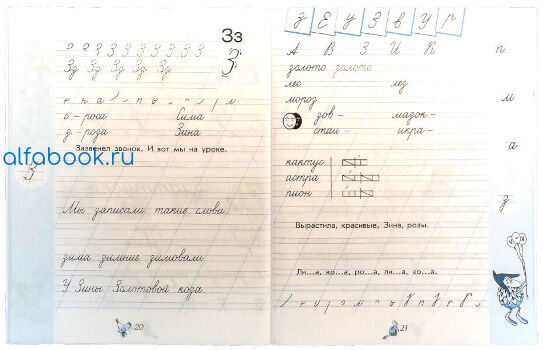 Зз
З з З З З З З З З З
Зд Зд Зд Зд Зд
З
с - роса Сима
з - роза Зина
Зазвенел звонок. И вот мы на уроке.
alfabook.ru
Мы записали такие слова.
зима зимние зимовали
У Зины Золотовой коза.
20
З Е У З в У р
А В З И К п
золото золото
лес лез
мороз м
зов - мазок -
стаи - икра -
а
кактус
астра
пион
з
Вырастила, красивые, Зина, розы.
Ли...а, ко...а, ро...а, ли...а, ко...а.
21